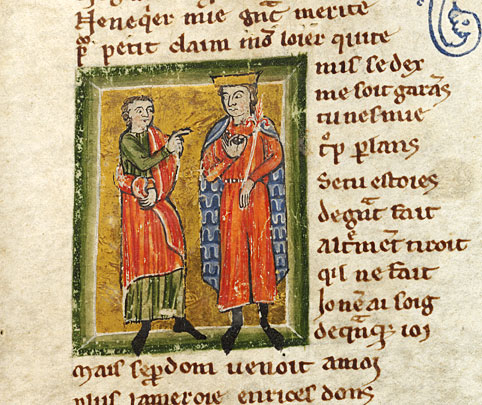 Heneqer mie gnt merite
petit claim mo loier quite
mis se dex
me soit garas
tu nes mie
tp plans
se tu estoies
de gnt fait
altmet iroit
qil ne fait
Jo nē ai soig
de
mais se pdom uenoit a moi
plus lameroie enrices dons